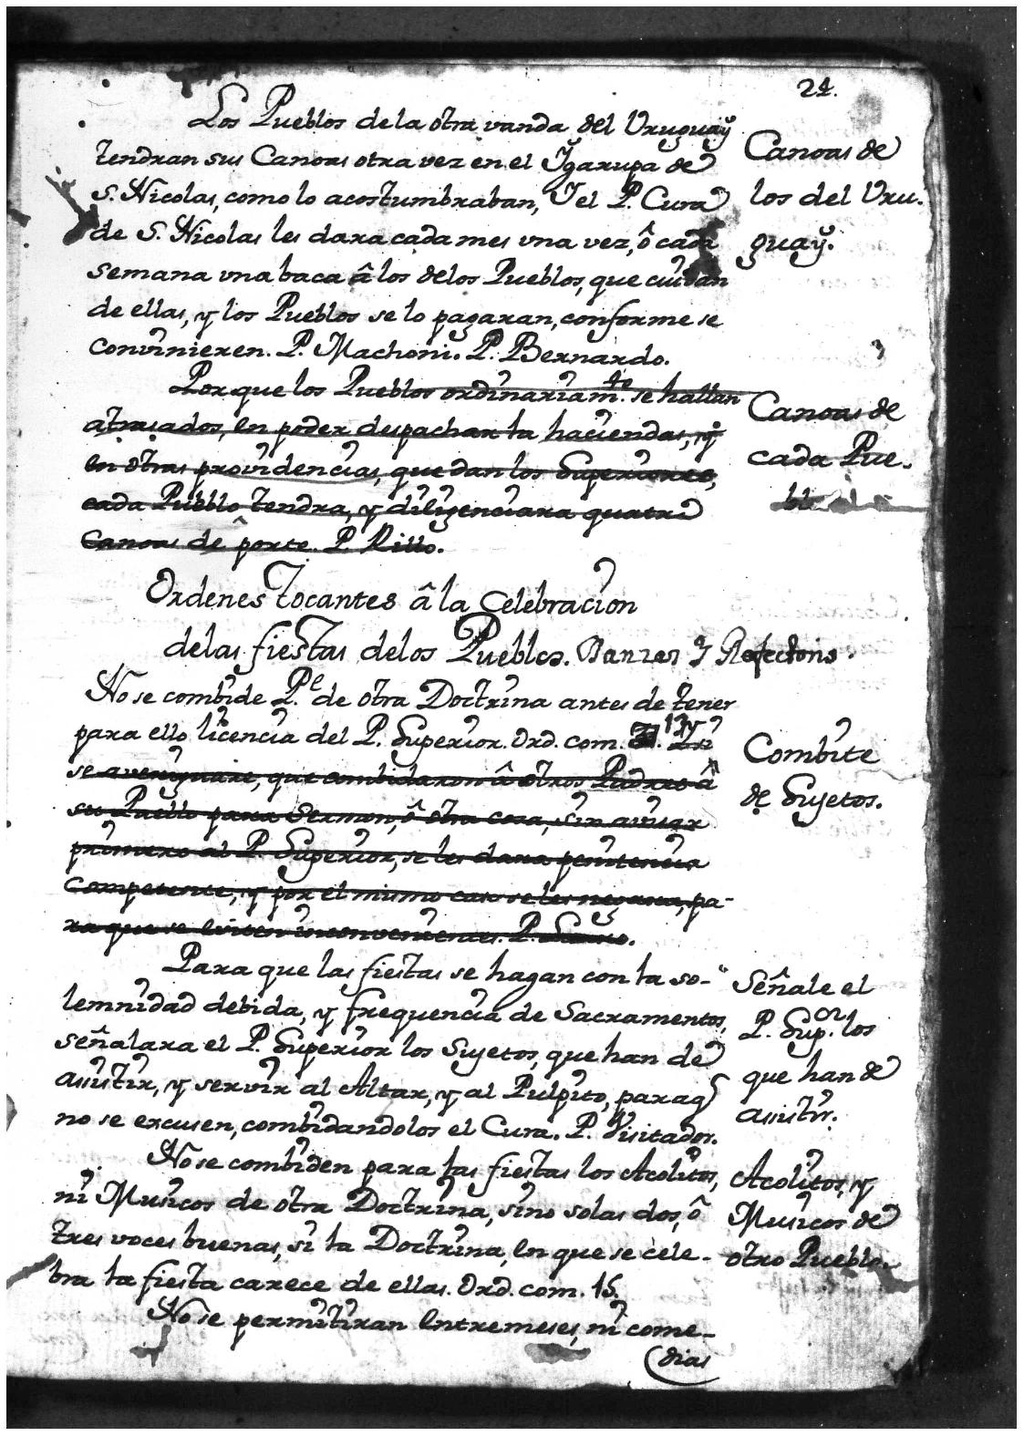 24.
Los Pueblos de la otra vanda del Uruguaÿ
tendran sus Canoas otra vez en el Ÿgarupa de
S. Nicolas, como lo acostumbraban, Y el P. Cura
de S. Nicolas les dara cada mes una vez, ô cada
semana una baca â los de los Pueblos, que cuidan
de ellas, y los Pueblos se lo pagaran, conforme se
convinieren. P. Machoni. P. Bernardo.
Canoas de
los del Uru-
guaÿ.
Por que los Pueblos ordinariam.te se hallan
atrasados, en poder despachar la haciendas, y
en otras providencias, que dan los Superiores,
cada Pueblo tendra, y diligenciara quatro
Canoas de porte. P. Rillo.
Canoas de
cada Pue-
blo
Ordenes tocantes â la Celebracion
de las fiestas de los Pueblos. Danzas Y Refectorio.
No se combide P.e de otra Doctrina antes de tener
para ello licencia del P. Superior. Ord. com. 13 y
se averiguare, que combidaron â otros Padres â
su Pueblo para Sermon, ô otra cosa, sin avisar
primero al P. Superior, se les dara penitencia
competente, y por el mismo caso se les negara, pa-
ra que se eviten inconvenientes. P.
Combite
de Sujetos.
Para que las fiestas se hagan con la so-
lemnidad debida, y frequencia de Sacramentos,
señalara el P. Superior los Sujetos, que han de
assistir, y servir al Altar, y al Pulpito, para q
no se escusen, combidandolos el Cura. P. Visitador.
Señale el
P. Sup.or los
que han de
assistir.
No se combiden para las fiestas los Acolitos,
ni Musicos de otra Doctrina, sino solas dos, ô
tres voces buenas, si la Doctrina, en que se cele-
bra la fiesta carece de ellas. Ord. com. 15.
Acolitos, y
Musicos de
otro Pueblo.
No se permitiran Entremeses, ni come-
dias